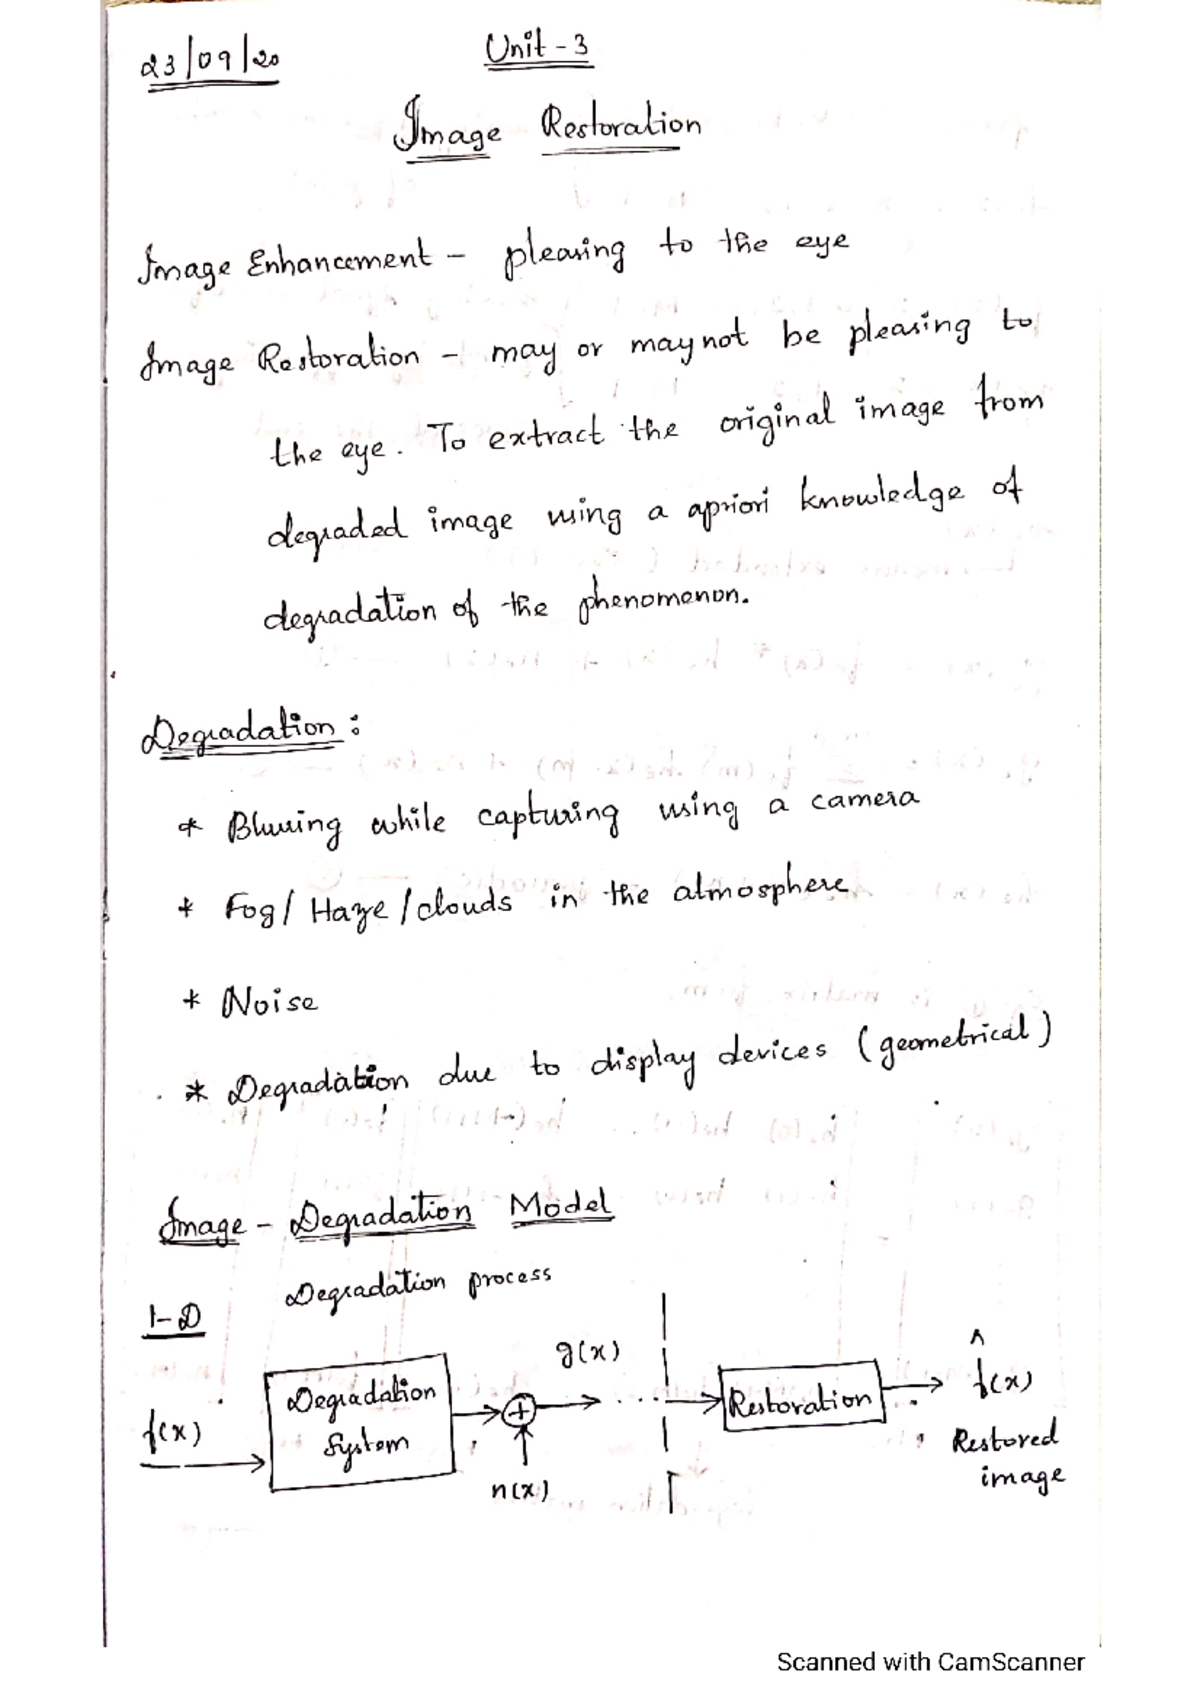 23/09/20
Unit - 3
Image Restoration
Image Enhancement - pleasing to the eye
Image Restoration - may or may not be pleasing to
the eye. To extract the original image from
degraded image using a apriori knowledge of
degradation of the phenomenon.
Degradation :
* Bluring while capturing using a camera
* Fog / Haze / clouds in the atmosphere
* Noise
* Degradation due to display devices (geometrical)
Image - Degradation Model
Degradation process
1-D
g(x)
f̂(x)
Degradation
System
Restoration
f(x)
+
n(x)
Restored
image
Scanned with CamScanner